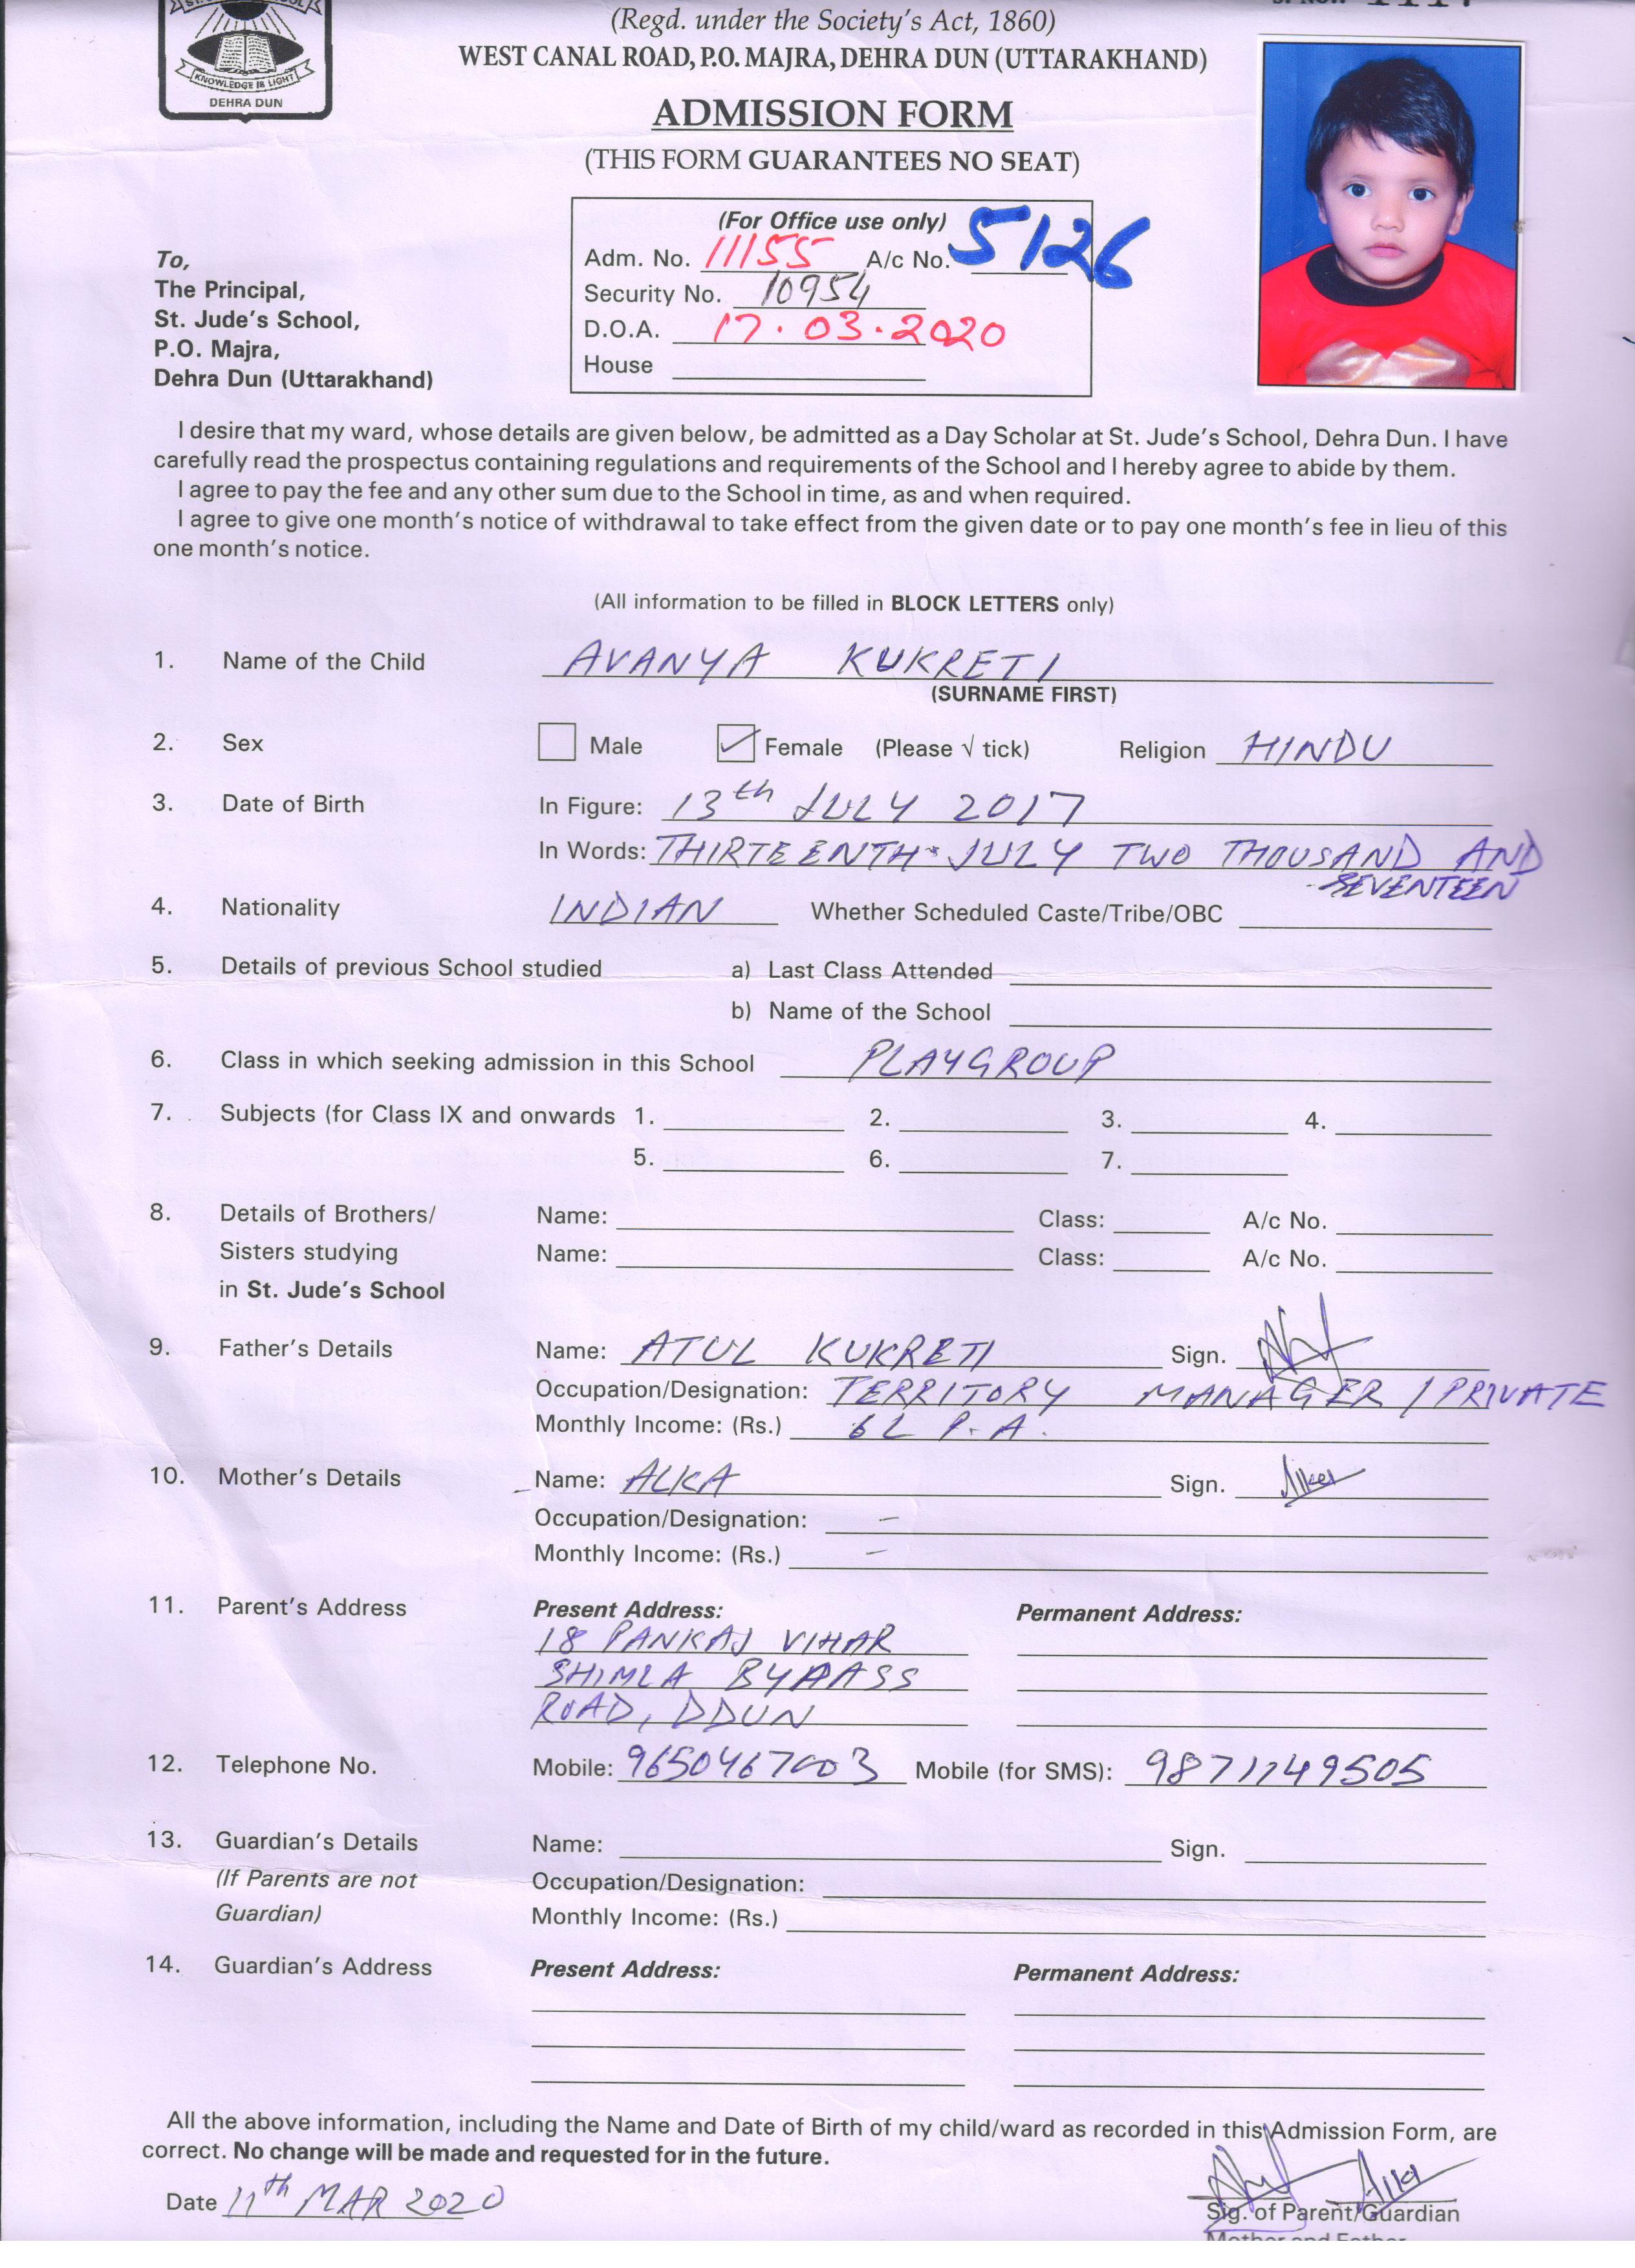 KNOWLEDGE IS LIGHT
DEHRA DUN
(Regd. under the Society's Act, 1860)
WEST CANAL ROAD, P.O. MAJRA, DEHRA DUN (UTTARAKHAND)
ADMISSION FORM
(THIS FORM GUARANTEES NO SEAT)
(For Office use only)
Adm. No. 11155 A/c No. 5126
Security No. 10954
D.O.A. 17.03.2020
House
To,
The Principal,
St. Jude's School,
P.O. Majra,
Dehra Dun (Uttarakhand)
I desire that my ward, whose details are given below, be admitted as a Day Scholar at St. Jude's School, Dehra Dun. I have
carefully read the prospectus containing regulations and requirements of the School and I hereby agree to abide by them.
I agree to pay the fee and any other sum due to the School in time, as and when required.
I agree to give one month's notice of withdrawal to take effect from the given date or to pay one month's fee in lieu of this
one month's notice.
(All information to be filled in BLOCK LETTERS only)
1. Name of the Child AVANYA KUKRETI
(SURNAME FIRST)
2. Sex Male ✓ Female (Please √ tick) Religion HINDU
3. Date of Birth In Figure: 13th JULY 2017
In Words: THIRTEENTH JULY TWO THOUSAND AND
SEVENTEEN
4. Nationality INDIAN Whether Scheduled Caste/Tribe/OBC
5. Details of previous School studied a) Last Class Attended
b) Name of the School
6. Class in which seeking admission in this School PLAYGROUP
7. Subjects (for Class IX and onwards 1. 2. 3. 4.
5. 6. 7.
8. Details of Brothers/ Name: Class: A/c No.
Sisters studying Name: Class: A/c No.
in St. Jude's School
9. Father's Details Name: ATUL KUKRETI Sign.
Occupation/Designation: TERRITORY MANAGER / PRIVATE
Monthly Income: (Rs.) 6L P.A.
10. Mother's Details Name: ALKA Sign. Alka
Occupation/Designation: -
Monthly Income: (Rs.) -
11. Parent's Address Present Address: Permanent Address:
18 PANKAJ VIHAR
SHIMLA BYPASS
ROAD, DDUN
12. Telephone No. Mobile: 9650467003 Mobile (for SMS): 9871149505
13. Guardian's Details Name: Sign.
(If Parents are not Occupation/Designation:
Guardian) Monthly Income: (Rs.)
14. Guardian's Address Present Address: Permanent Address:
All the above information, including the Name and Date of Birth of my child/ward as recorded in this Admission Form, are
correct. No change will be made and requested for in the future.
Date 11th MAR 2020 Alka
Sig. of Parent/Guardian
Mother and Father